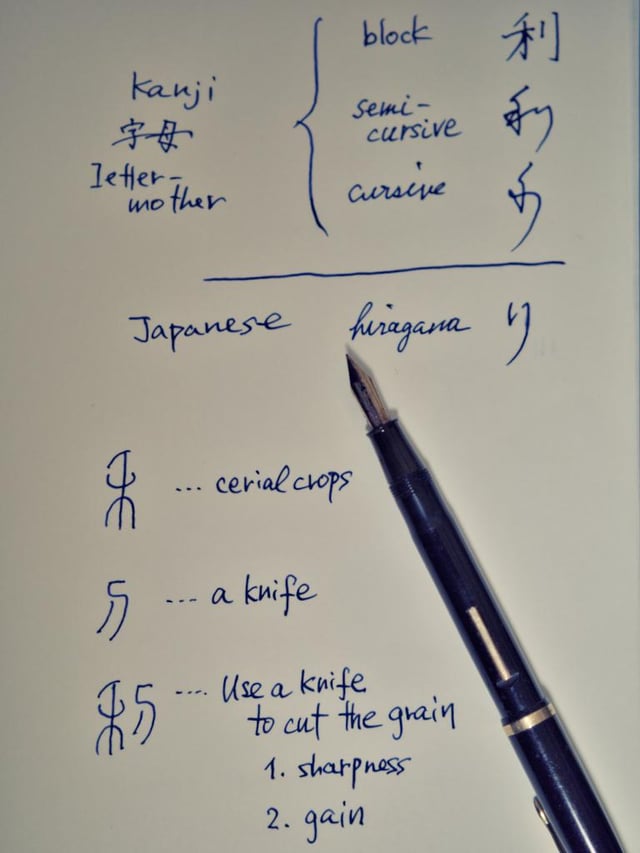 Kanji
字母
letter-
mother
block 利
semi-
cursive 利
cursive 利
Japanese hiragana り
... cerial crops
... a knife
.... Use a knife
to cut the grain
1. sharpness
2. gain